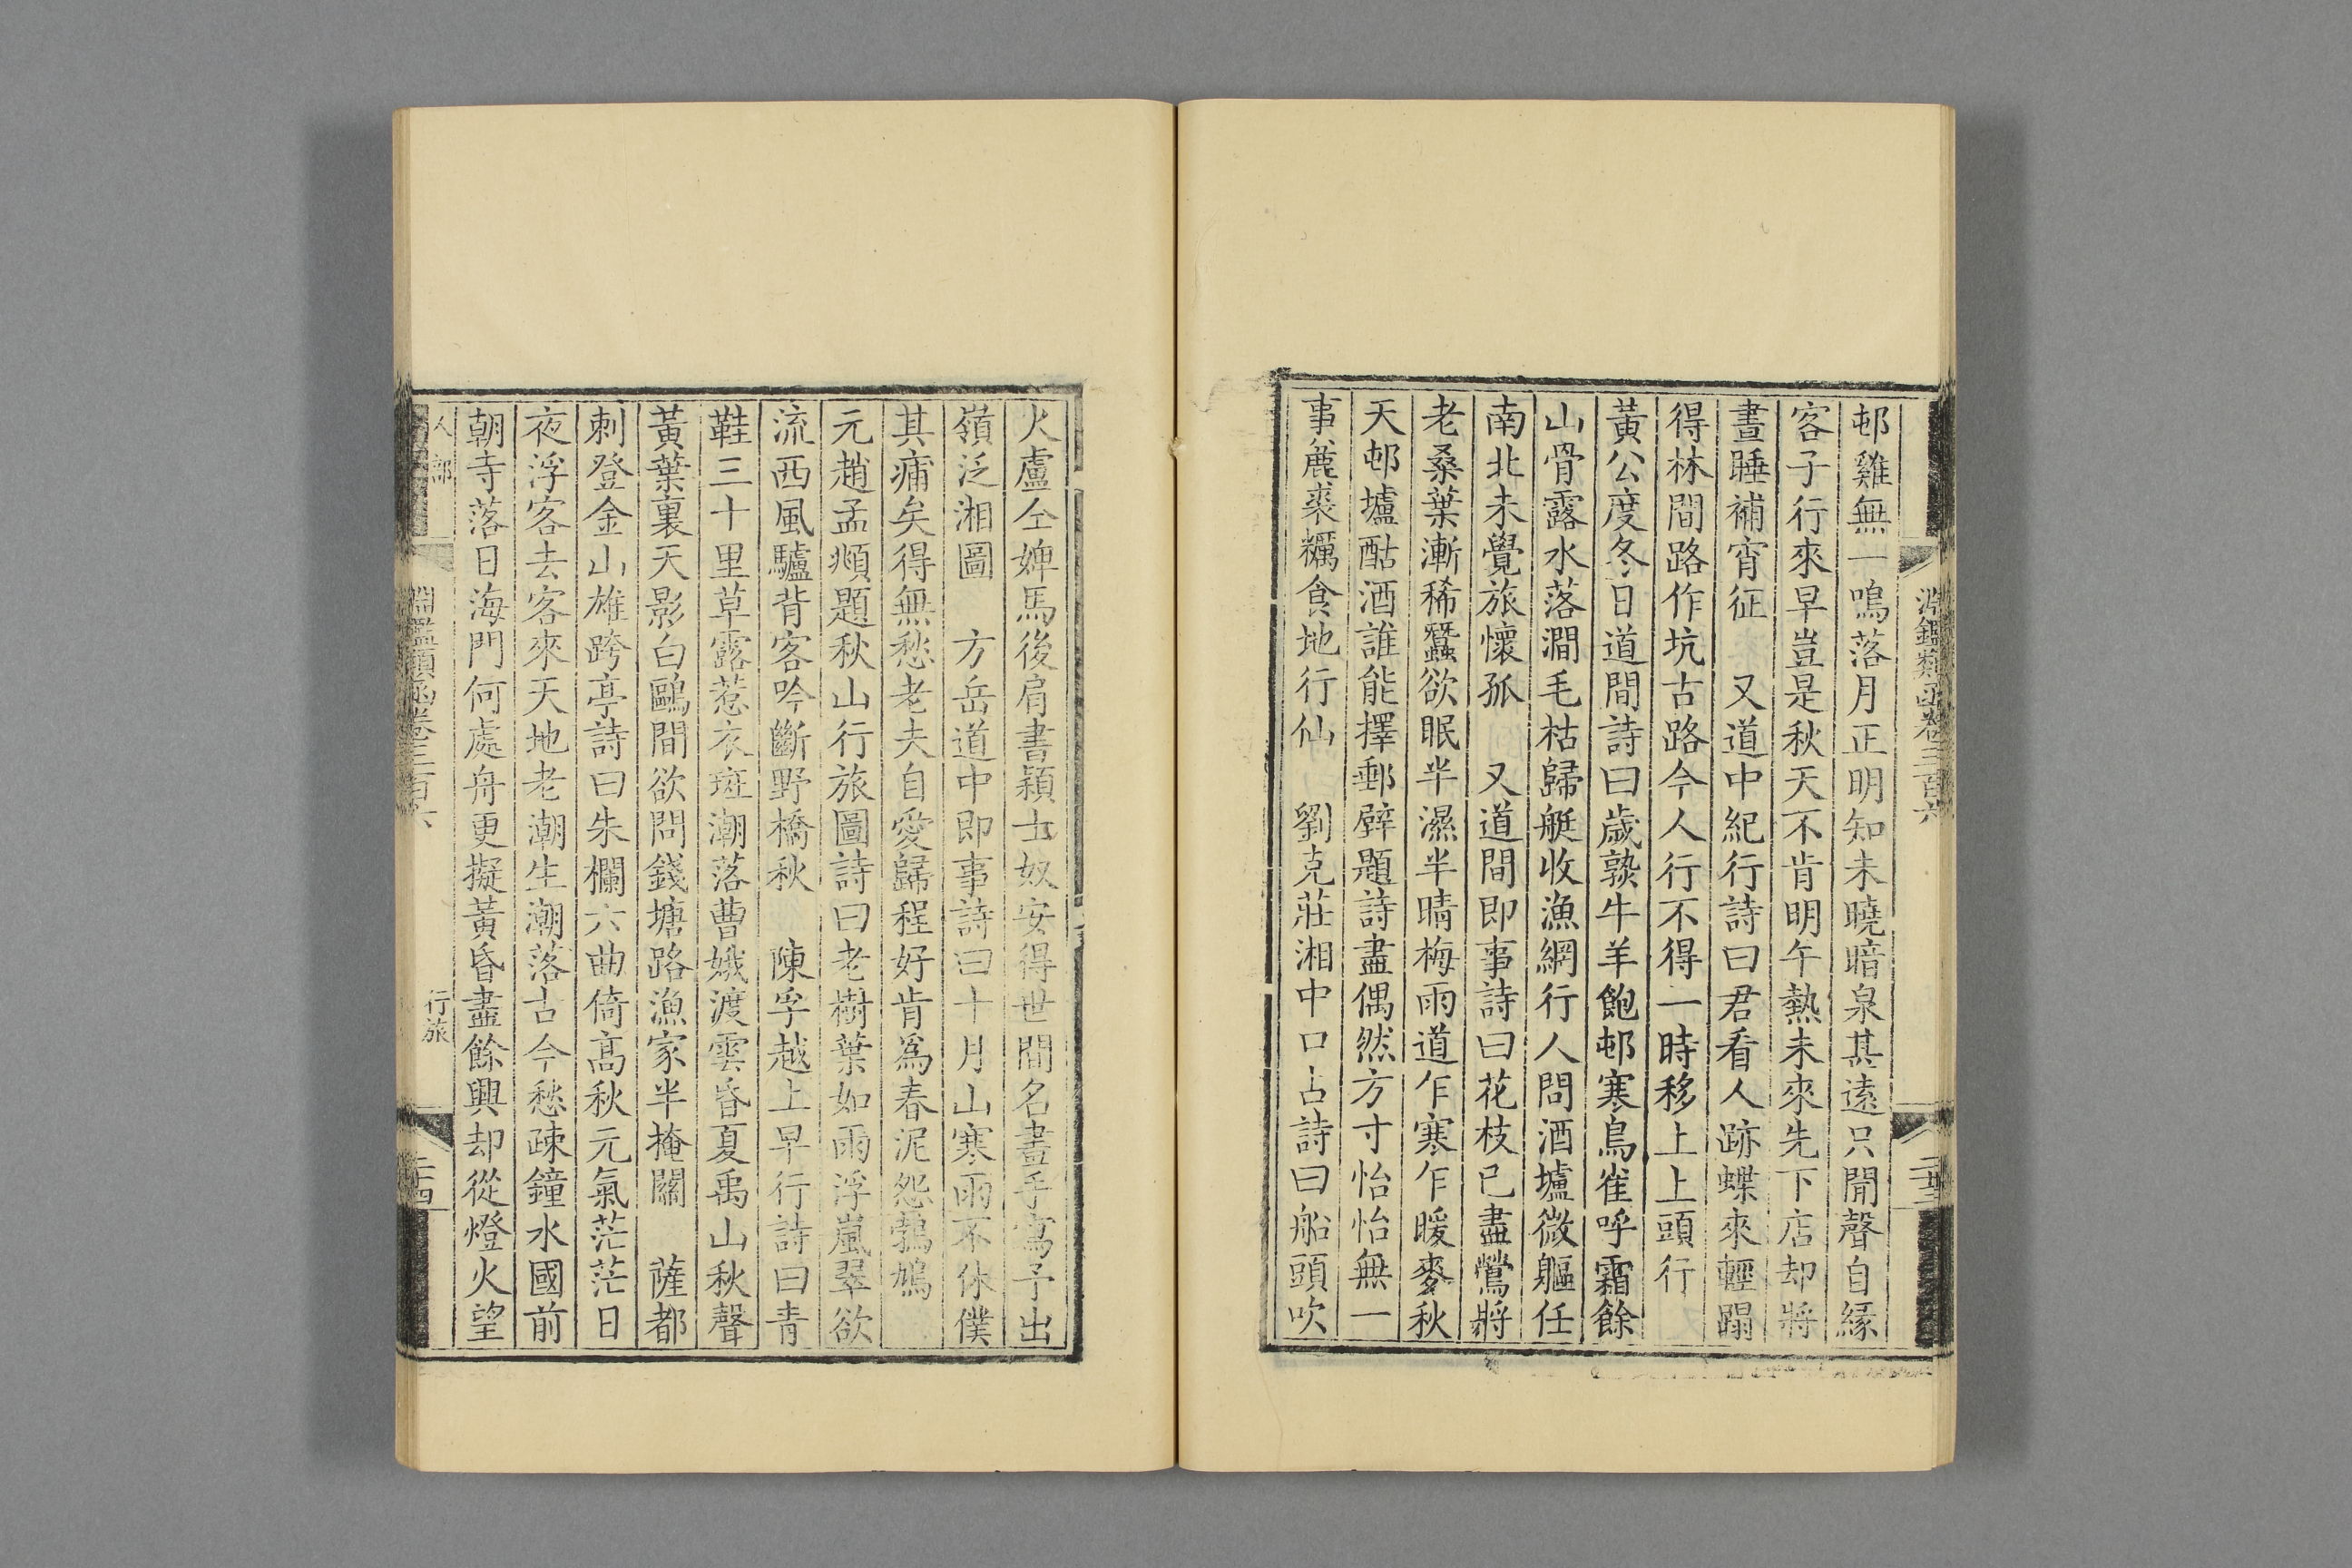 淵鑑類函卷三百六
二十三
邨雞無一鳴落月正明知未曉暗泉甚遠只聞聲自緣
客子行來早豈是秋天不肯明午熱未來先下店却將
晝睡補宵征 又道中紀行詩曰君看人跡蝶來輕蹋
得林間路作坑古路今人行不得一時移上上頭行
黃公度冬日道間詩曰歲熟牛羊飽邨寒鳥雀呼霜餘
山骨露水落澗毛枯歸艇收漁網行人問酒壚微軀任
南北未覺旅懷孤 又道間即事詩曰花枝已盡鶯將
老桑葉漸稀蠶欲眠半濕半晴梅雨道乍寒乍暖麥秋
天邨壚酤酒誰能擇郵壁題詩盡偶然方寸怡怡無一
事麄裘糲食地行仙 劉克莊湘中口占詩曰船頭吹
火盧仝婢馬後肩書穎士奴安得世間名畫手寫予出
嶺泛湘圖 方岳道中即事詩曰十月山寒雨不休僕
其痡矣得無愁老夫自愛歸程好肯為春泥怨鵓鳩
元趙孟頫題秋山行旅圖詩曰老樹葉如雨浮嵐翠欲
流西風驢背客吟斷野橋秋 陳孚越上早行詩曰青
鞋三十里草露惹衣斑潮落曹娥渡雲昏夏禹山秋聲
黃葉裏天影白鷗間欲問錢塘路漁家半掩關 薩都
剌登金山雄跨亭詩曰朱欄六曲倚高秋元氣茫茫日
夜浮客去客來天地老潮生潮落古今愁疎鐘水國前
朝寺落日海門何處舟更擬黃昏盡餘興却從燈火望
人部 淵鑑類函卷三百六 行旅
二十四